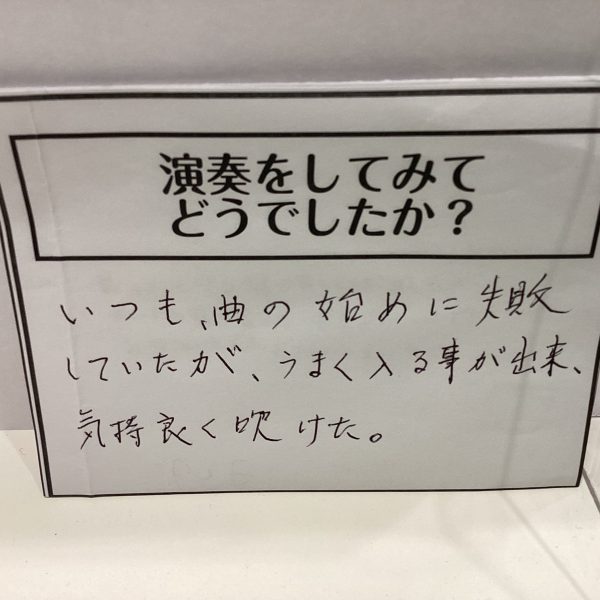 演奏をしてみて
どうでしたか？
いつも、曲の始めに失敗
していたが、うまく入る事が出来、
気持良く吹けた。